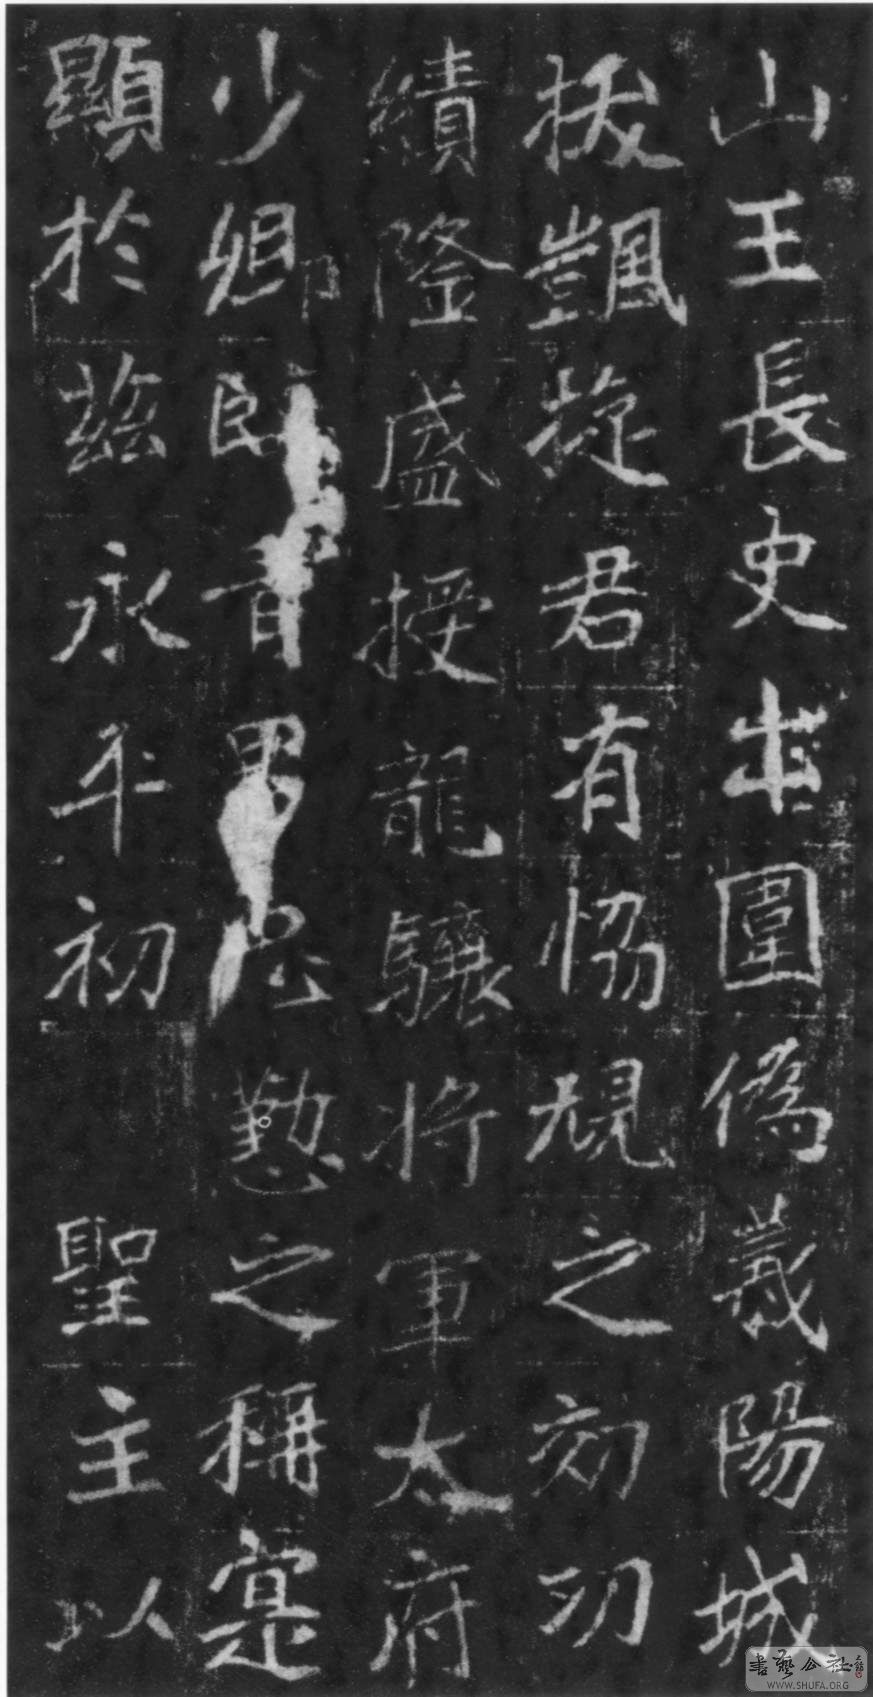 山王長史出圍偽義陽城
拔颽旋君有恊規之効功
績隆盛授龍驤將軍太府
少卿臨青男忠懃之稱寔
顯於茲永平初 聖主以
書藝公社
WWW.SHUFA.ORG